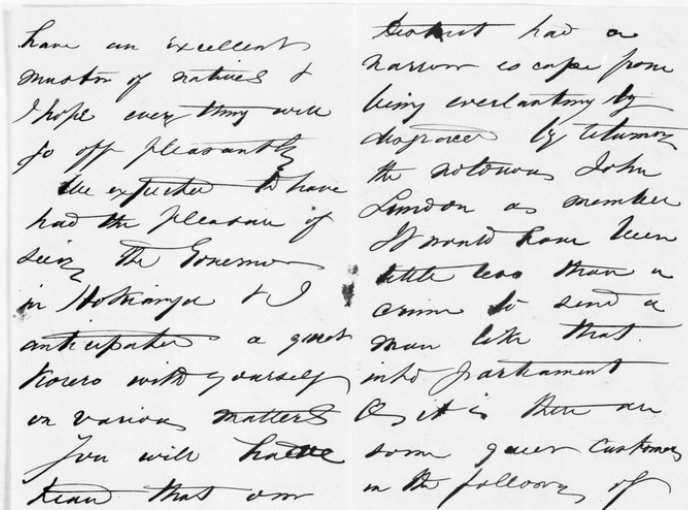 have an excellent
muster of natives &
I hope every thing will
go off pleasantly
We expected to have
had the pleasure of
seeing the Governor
in Hokianga & I
anticipated a great
Korero with yourself
on various matters
You will have
heard that our
District had a
narrow escape from
being everlastingly
disgraced by returning
the notorious John
Lundon as member
It would have been
little less than a
crime to send a
man like that
into Parliament
As it is there are
some queer customers
in the following of